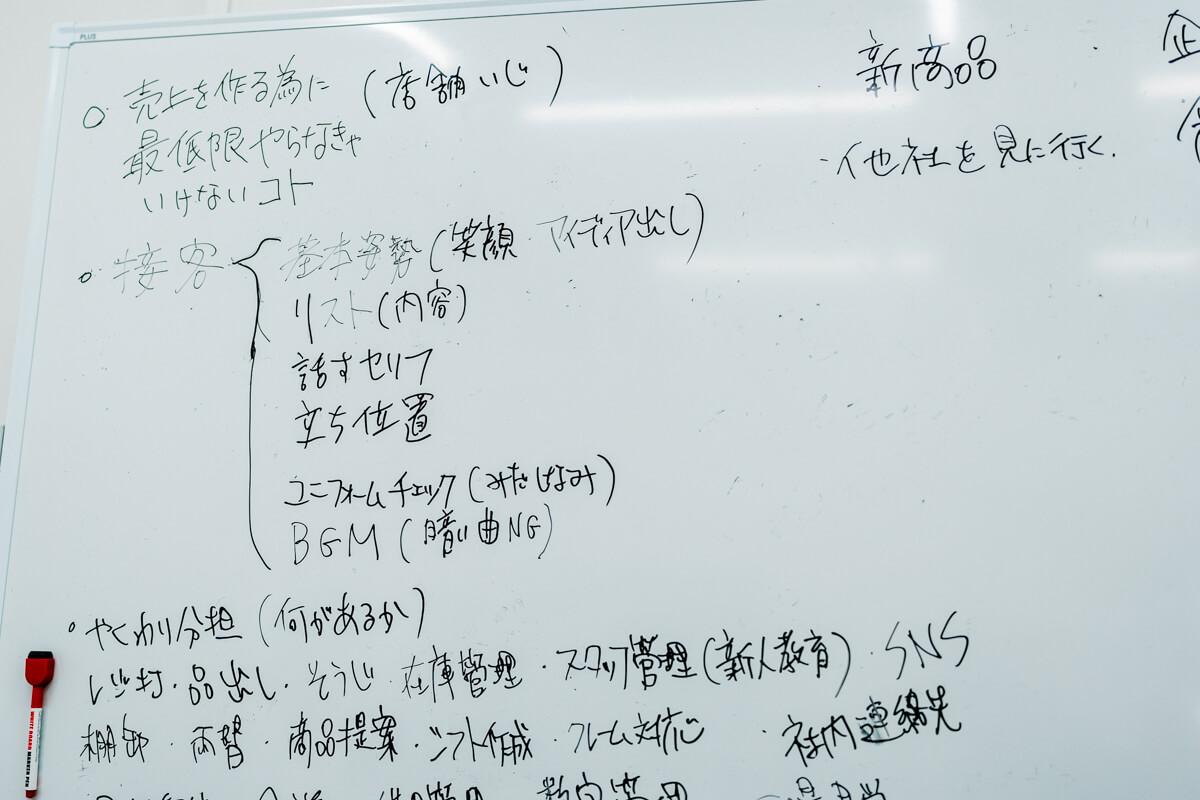 PLUS
○ 売上を作る為に (店舗いじ)
最低限やらなきゃ
いけないコト
・接客 基本姿勢(笑顔・アイディア出し)
リスト(内容)
話すセリフ
立ち位置
ユニフォームチェック(みだしなみ)
BGM (暗い曲NG)
・やくわり分担 (何があるか)
レジ打・品出し・そうじ・在庫管理・スタッフ管理(新人教育)・SNS
棚卸・両替・商品提案・シフト作成・クレーム対応 ・社内連絡先
新商品
・他社を見に行く.
企
WHITE BOARD MARKER PEN